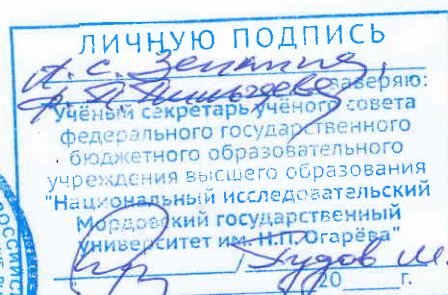 ЛИЧНУЮ ПОДПИСЬ
А. С.
заверяю:
Учёный секретарь учёного совета
федерального государственного
бюджетного образовательного
учреждения высшего образования
"Национальный исследовательский
Мордовский государственный
университет им. Н.П. Огарёва"
20 г.